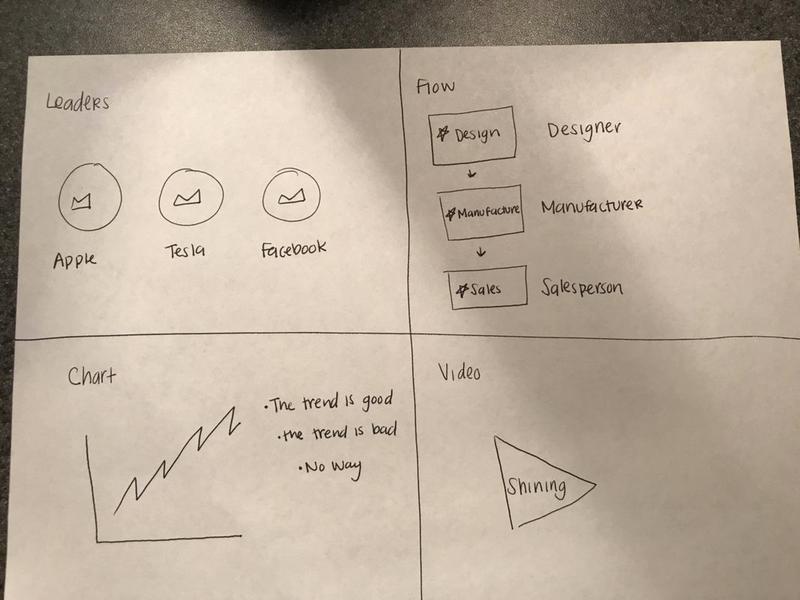 Leaders
Apple Tesla Facebook
Flow
Design Designer
Manufacture Manufacturer
Sales Salesperson
Chart
•The trend is good
•the trend is bad
•No way
Video
Shining